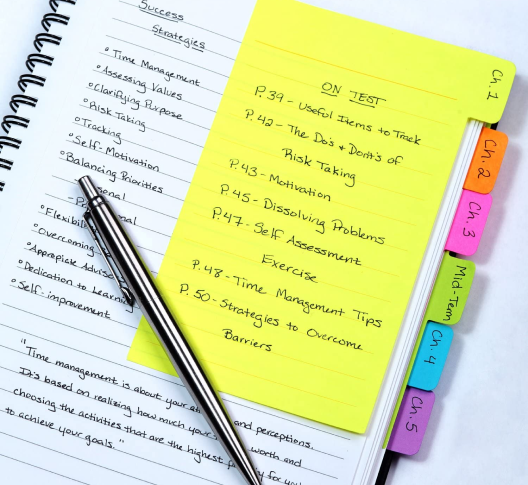 Success
Strategies
° Time Management
° Assessing Values
° Clarifying Purpose
° Risk Taking
° Tracking
° Self-Motivation
° Balancing Priorities
° Overcoming
° Dedication to Learning
° Self-improvement
"Time management is about your and perceptions.
It's based on realizing how much your worth and
choosing the activities that are the highest for
to achieve your goals."
ON TEST
P. 39 - Useful Items to Track
P. 42 - The Do's + Dont's of
Risk Taking
P. 43 - Motivation
P. 45 - Dissolving Problems
P. 47 - Self Assessment
Exercise
P. 48 - Time Management Tips
P. 50 - Strategies to Overcome
Barriers
Ch. 1
Ch. 2
Ch. 3
Mid-Term
Ch. 4
Ch. 5